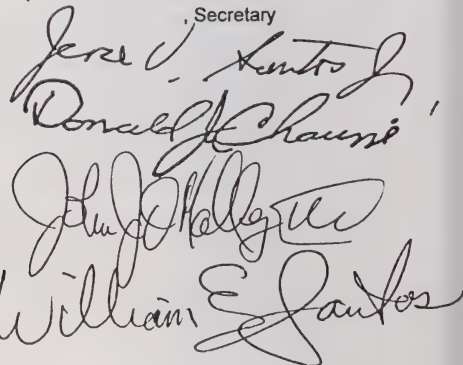 , Secretary
Santos Jr
Donald J. Chaussé
John J. O'Malley III
William E. Santos